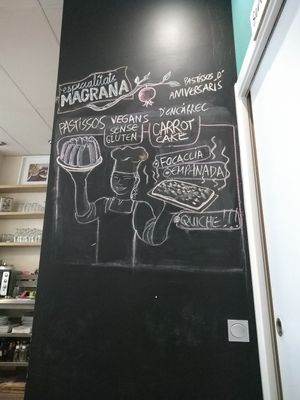 especialitats
MAGRANA
PASTISSOS D'
ANIVERSARIS
D'ENCÀRREC
PASTISSOS
VEGANS
SENSE
GLUTEN
CARROT
CAKE
FOCACCIA
EMPANADA
QUICHE!!!